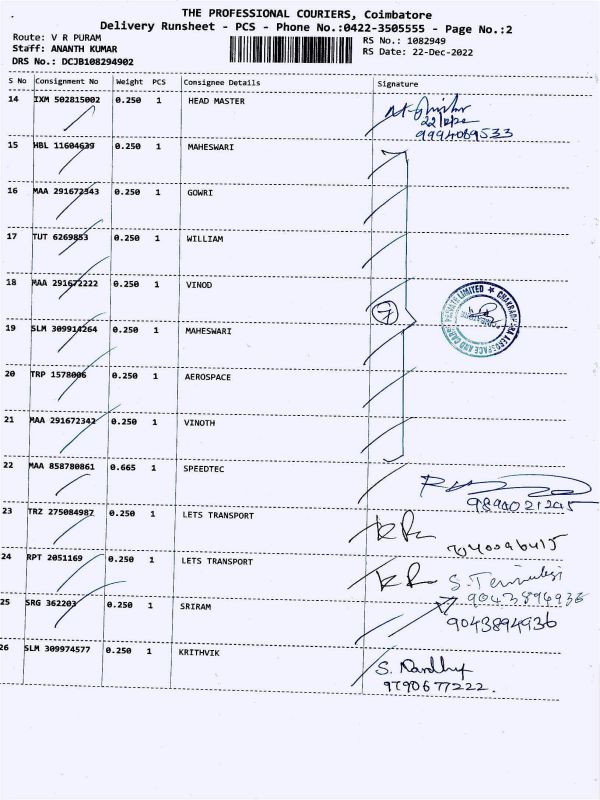 THE PROFESSIONAL COURIERS, Coimbatore
Delivery Runsheet - PCS - Phone No.:0422-3505555 - Page No.:2
Route: V R PURAM
RS No.: 1082949
Staff: ANANTH KUMAR
RS Date: 22-Dec-2022
DRS No.: DCJB108294902
S No Consignment No Weight PCS Consignee Details Signature
14 IXM 502815002 0.250 1 HEAD MASTER
9994089533
15 HBL 11604639 0.250 1 MAHESWARI
16 MAA 291672343 0.250 1 GOWRI
17 TUT 6269853 0.250 1 WILLIAM
18 MAA 291672222 0.250 1 VINOD
7
PRIVATE LIMITED ★
19 SLM 309914264 0.250 1 MAHESWARI
20 TRP 1578006 0.250 1 AEROSPACE
21 MAA 291672342 0.250 1 VINOTH
22 MAA 858780861 0.665 1 SPEEDTEC
23 TRZ 275084987 0.250 1 LETS TRANSPORT
24 RPT 2051169 0.250 1 LETS TRANSPORT
9043894936
25 SRG 362203 0.250 1 SRIRAM
9043894936
26 SLM 309974577 0.250 1 KRITHVIK
9790677222.